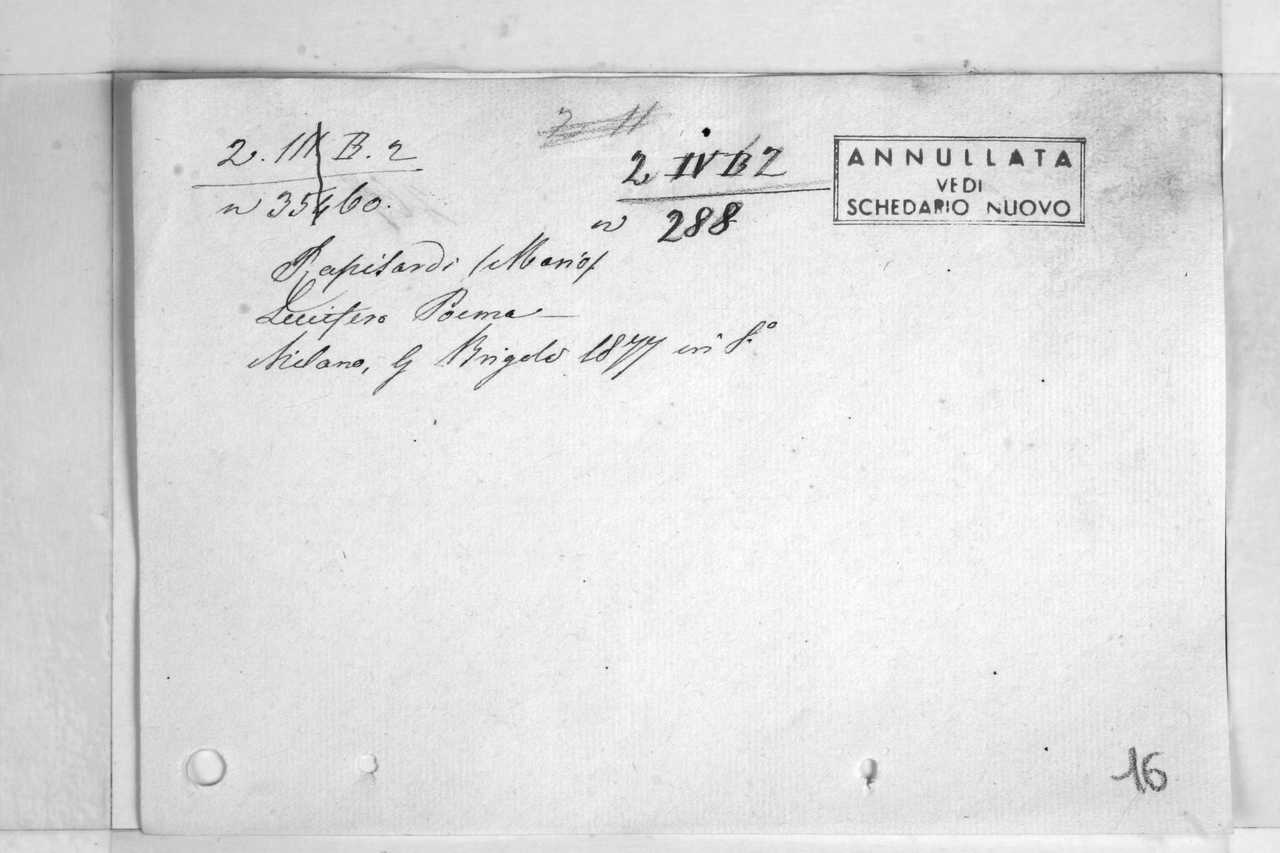 2. III B. 2
n 35460.
2 IV B 2
n 288
ANNULLATA
VEDI
SCHEDARIO NUOVO
Rapisardi (Mario)
Lucifero Poema —
Milano, G Brigola 1877 in 8.°
16